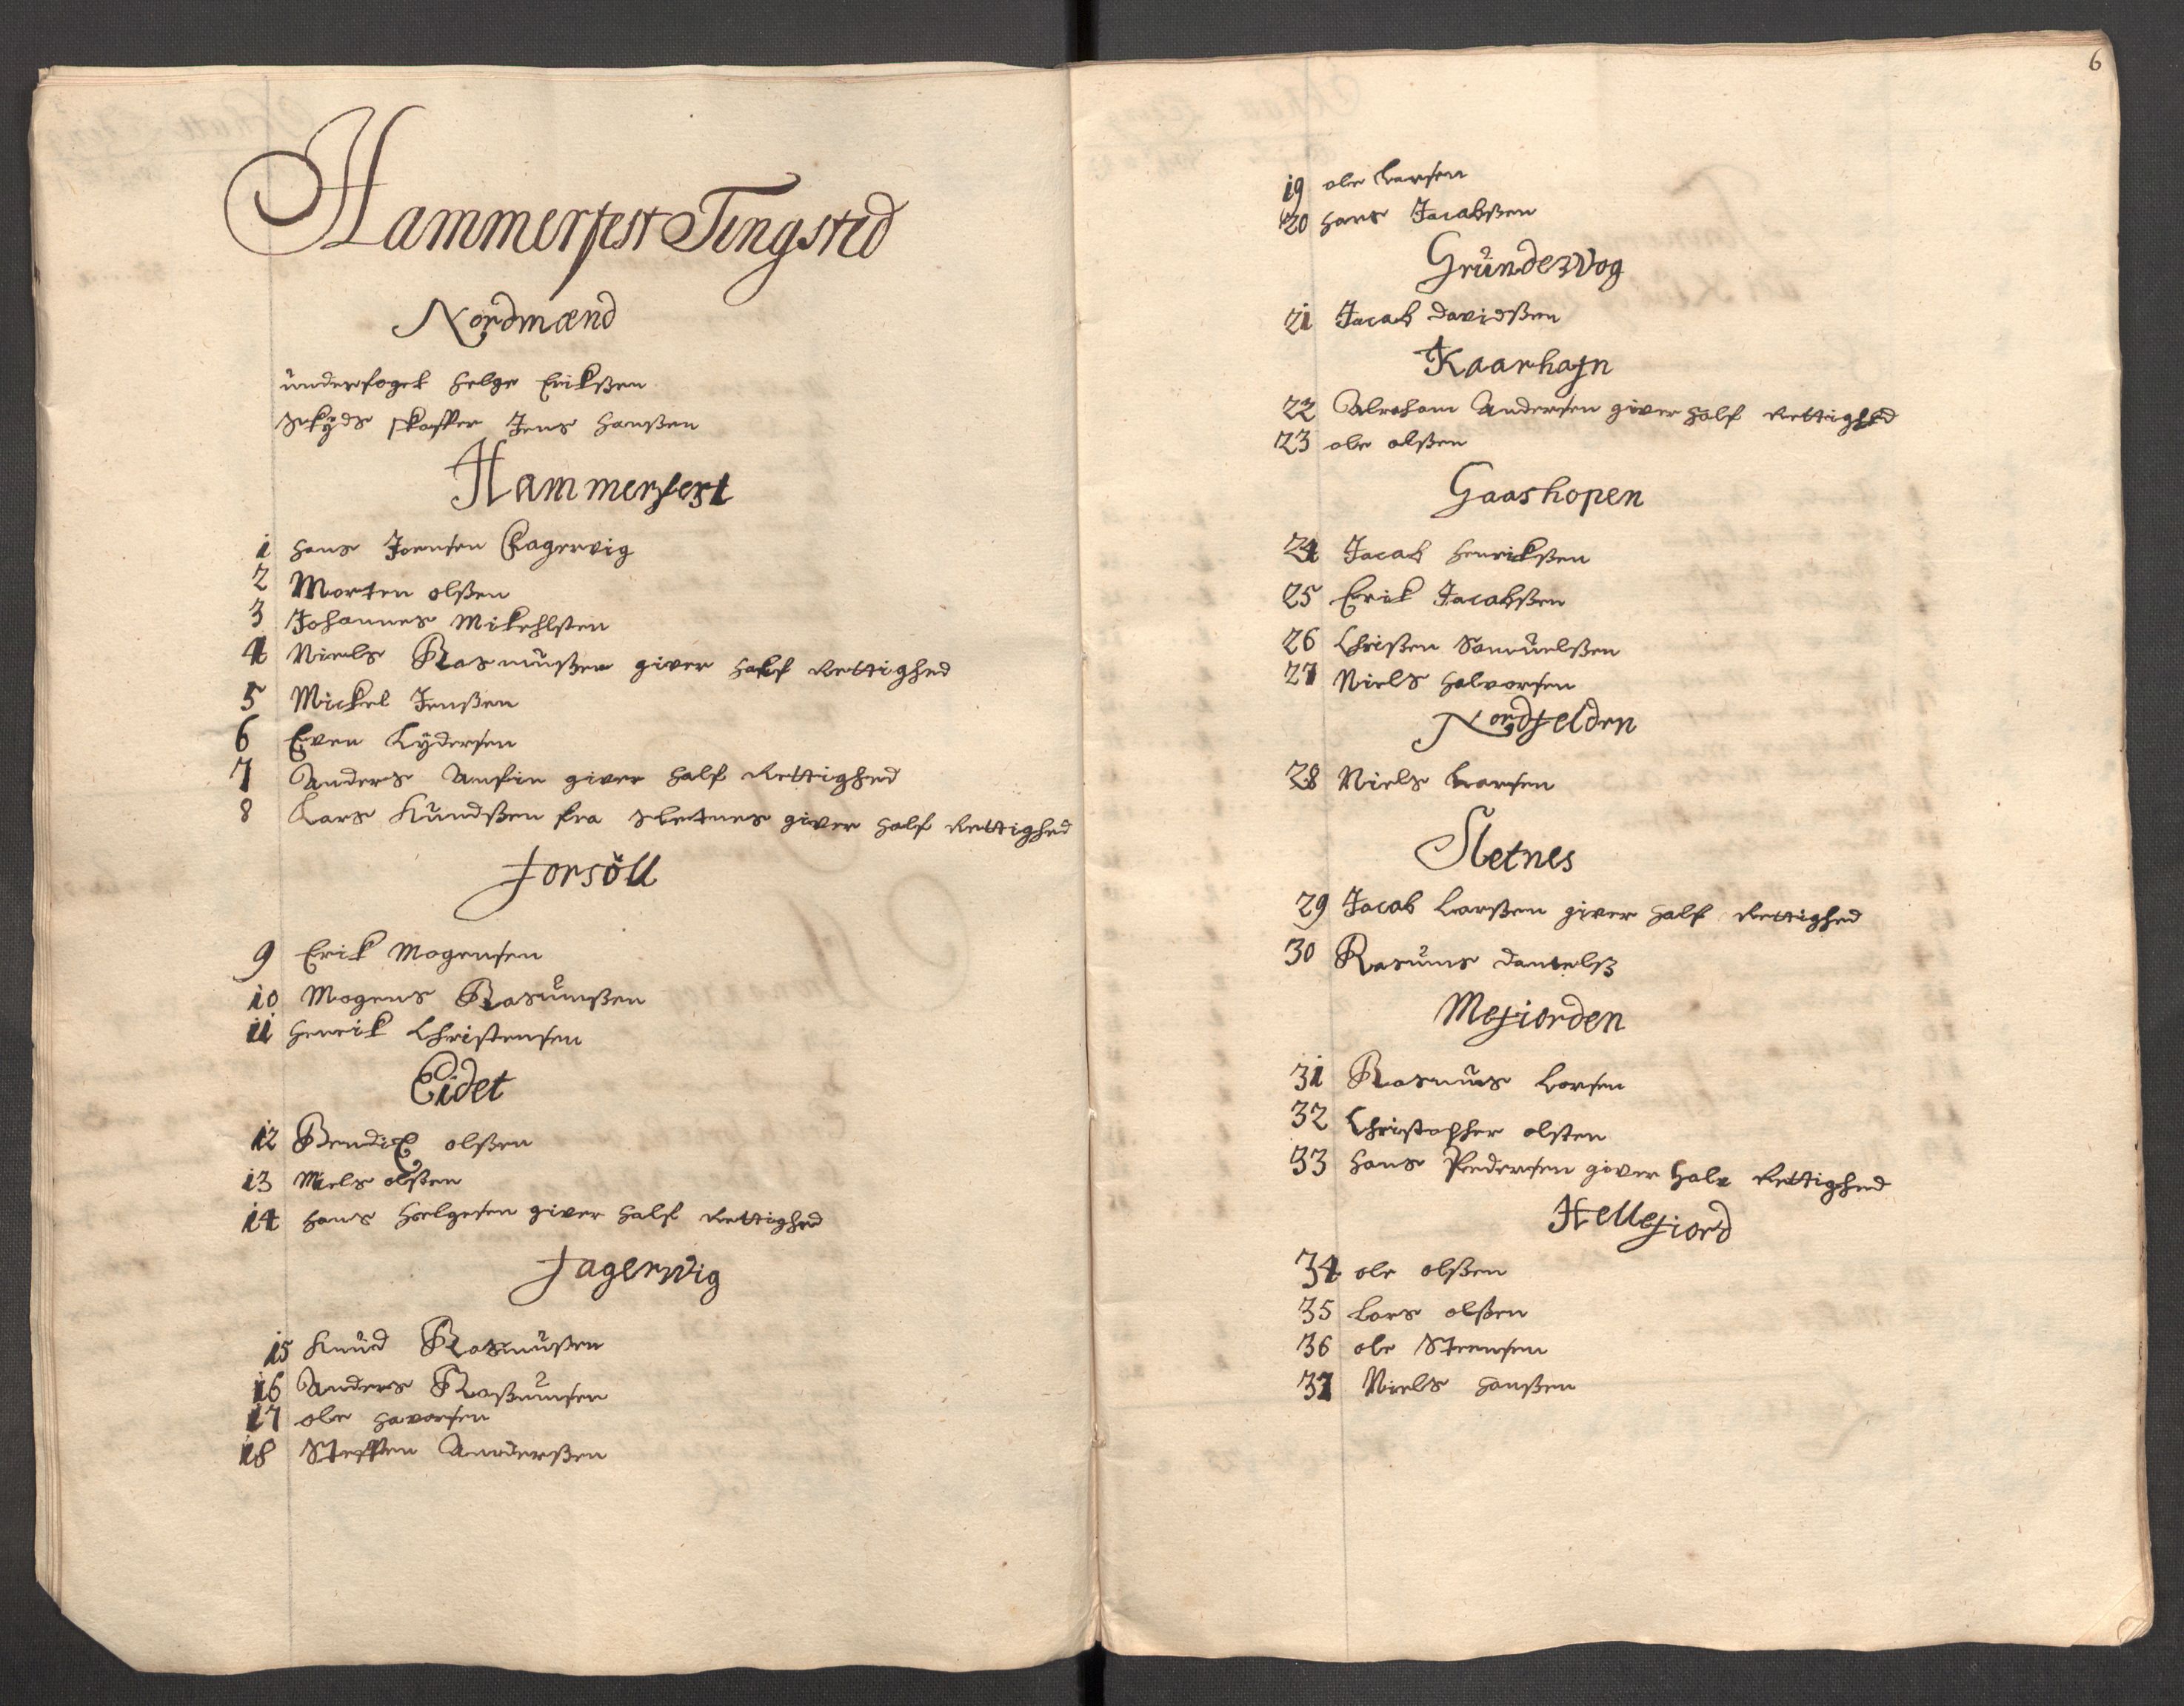 Hammerfest Tingsted
Nordmænd
underfoget Helge Erikßen
Skyds skaffer Jens Hanßen
Hammerfest
1 Hans Joensen Fagervig
2 Morten olßen
3 Johannes Mikehlsten
4 Niels Rasmußen giver half Rettighed
5 Mickel Jenßen
6 Even Lydersen
7 Anders Anfin giver half Rettighed
8 Lars Kundßen fra Sletnes giver half Rettighed
Forsöll
9 Erik Mogensen
10 Mogens Rasumßen
11 Henrik Christensen
Eidet
12 Bendix olßen
13 Niels olßen
14 Hans Helgesen giver half Rettighed
Fagerwig
15 Knud Rasmußen
16 Anders Raßumsen
17 ole Havorsen
18 Steffen Anderßen
6
19 ole Larsen
20 Hans Jacobßen
Grundewog
21 Jacob Davidßen
Kaarhafn
22 Abraham Andersen giver half Rettighed
23 ole olßen
Gaashopen
24 Jacob Henrikßen
25 Erik Jacobßen
26 Christen Samuelßen
27 Niels Halvorsen
Nordfelden
28 Niels Larsen
Sletnes
29 Jacob Larßen giver half Rettighed
30 Rasums Danielß
Mefiorden
31 Rasmus Larsen
32 Christopher olsten
33 Hans Pedersen giver Halv Rettighed
Hellefiord
34 ole olßen
35 Lars olßen
36 ole Steensen
37 Niels Hanßen